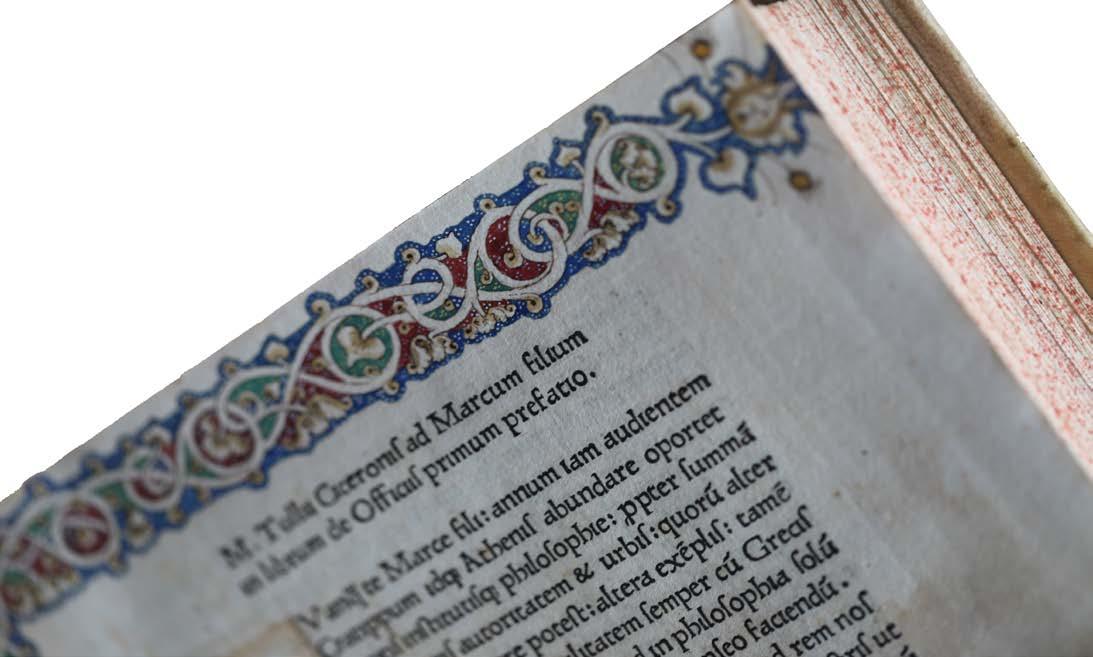 M. Tullii Ciceroniſ ad Marcum filium
in librum de Officiiſ primum prefatio.
te Marce fili: annum iam audientem
idqꝫ Atheniſ abundare oportet
inſtitutiſqꝫ philoſophie: ꝓpter ſummā
autoritatem & urbiſ: quorū alter
te poteſt: altera exēpliſ: tamē
utilitatem ſemper cū Greciſ
in philoſophia ſolū
faciendū.
rem noſ
ut